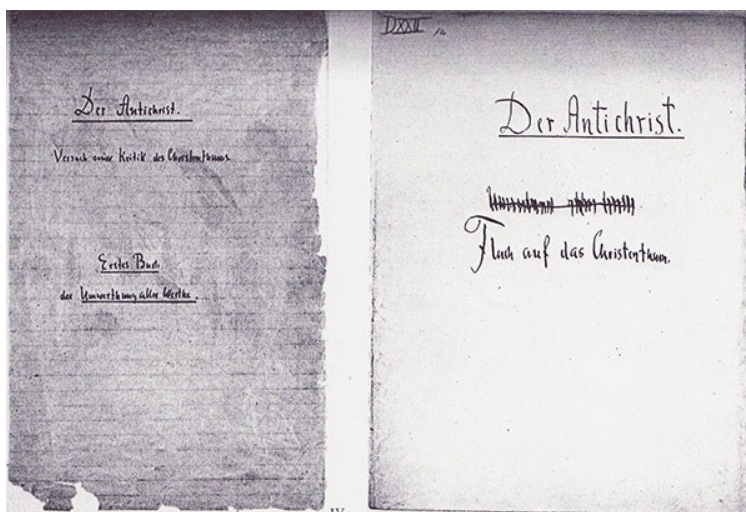 Der Antichrist.
Versuch einer Kritik des Christenthums.
Erstes Buch
der Umwerthung aller Werthe.
DXXII
Der Antichrist.
Umwerthung aller Werthe.
Fluch auf das Christenthum.
IV